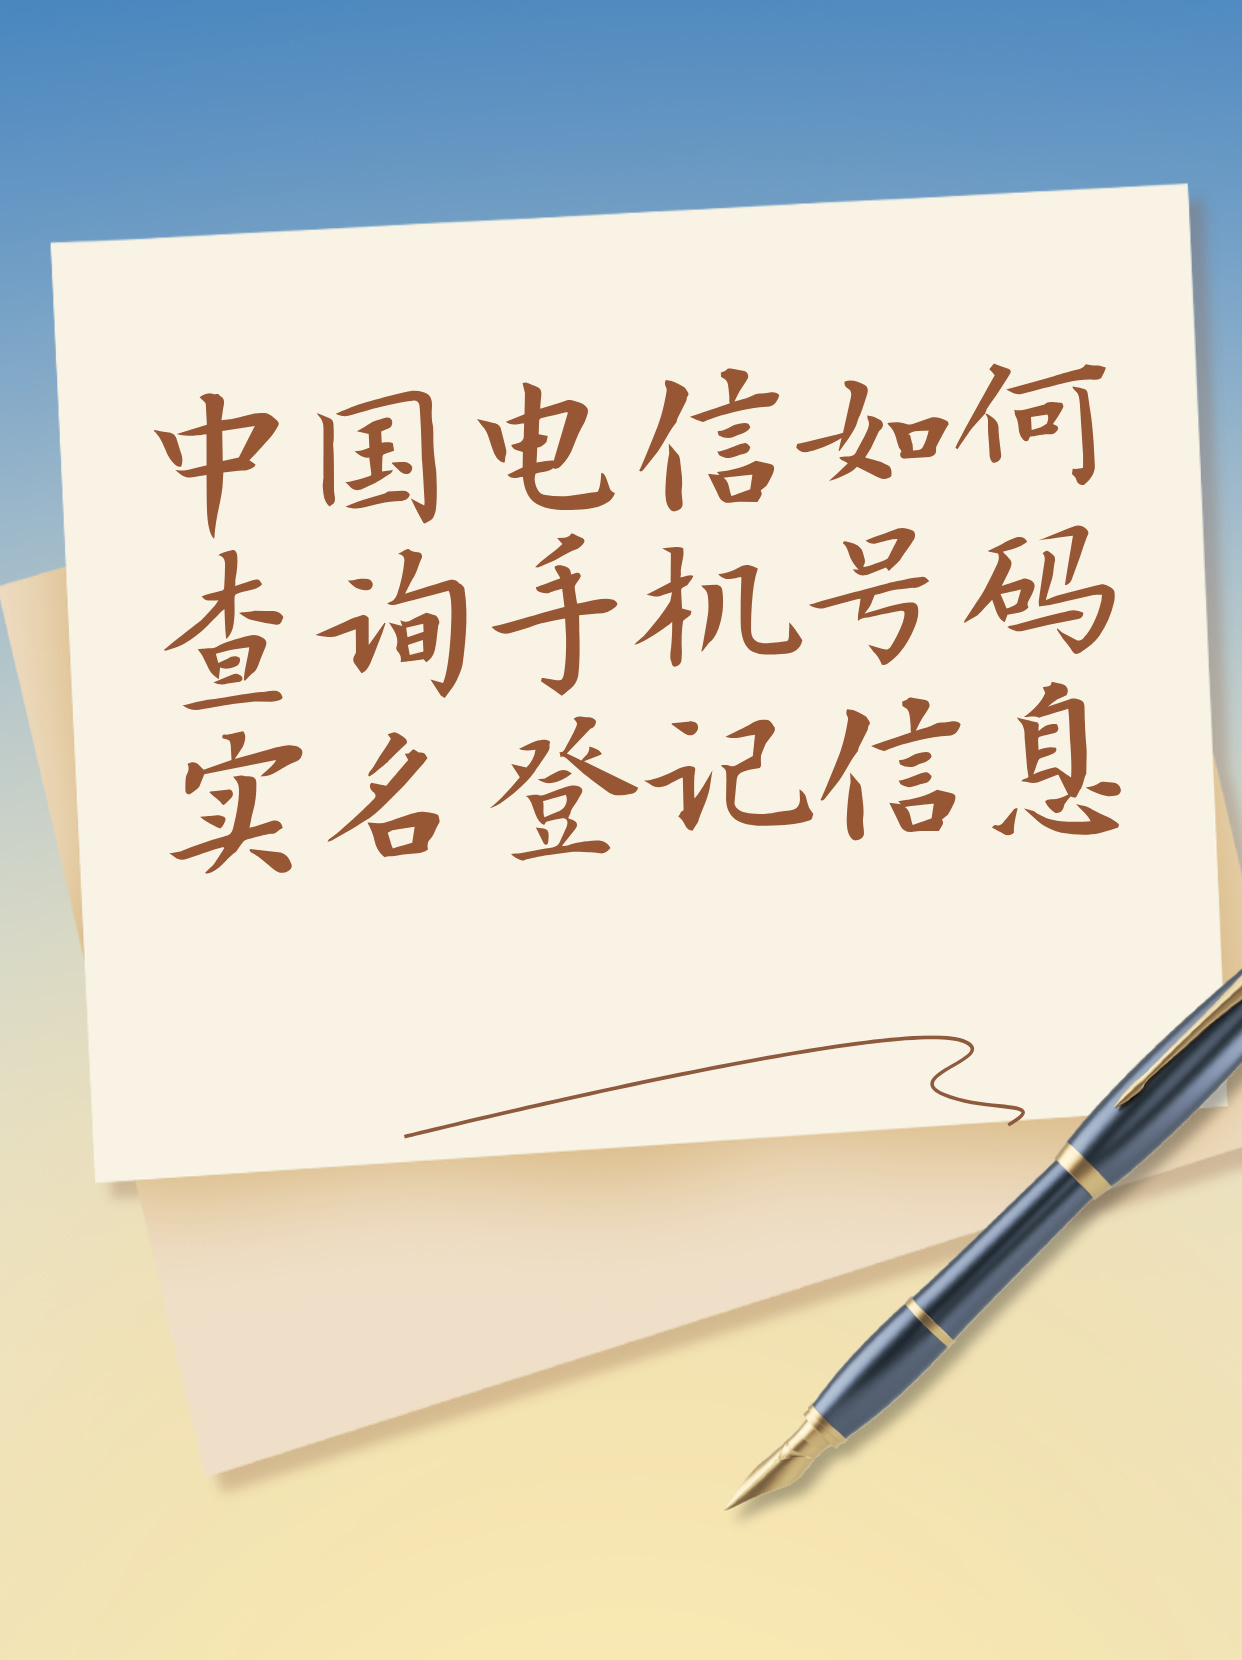 中国电信如何
查询手机号码
实名登记信息